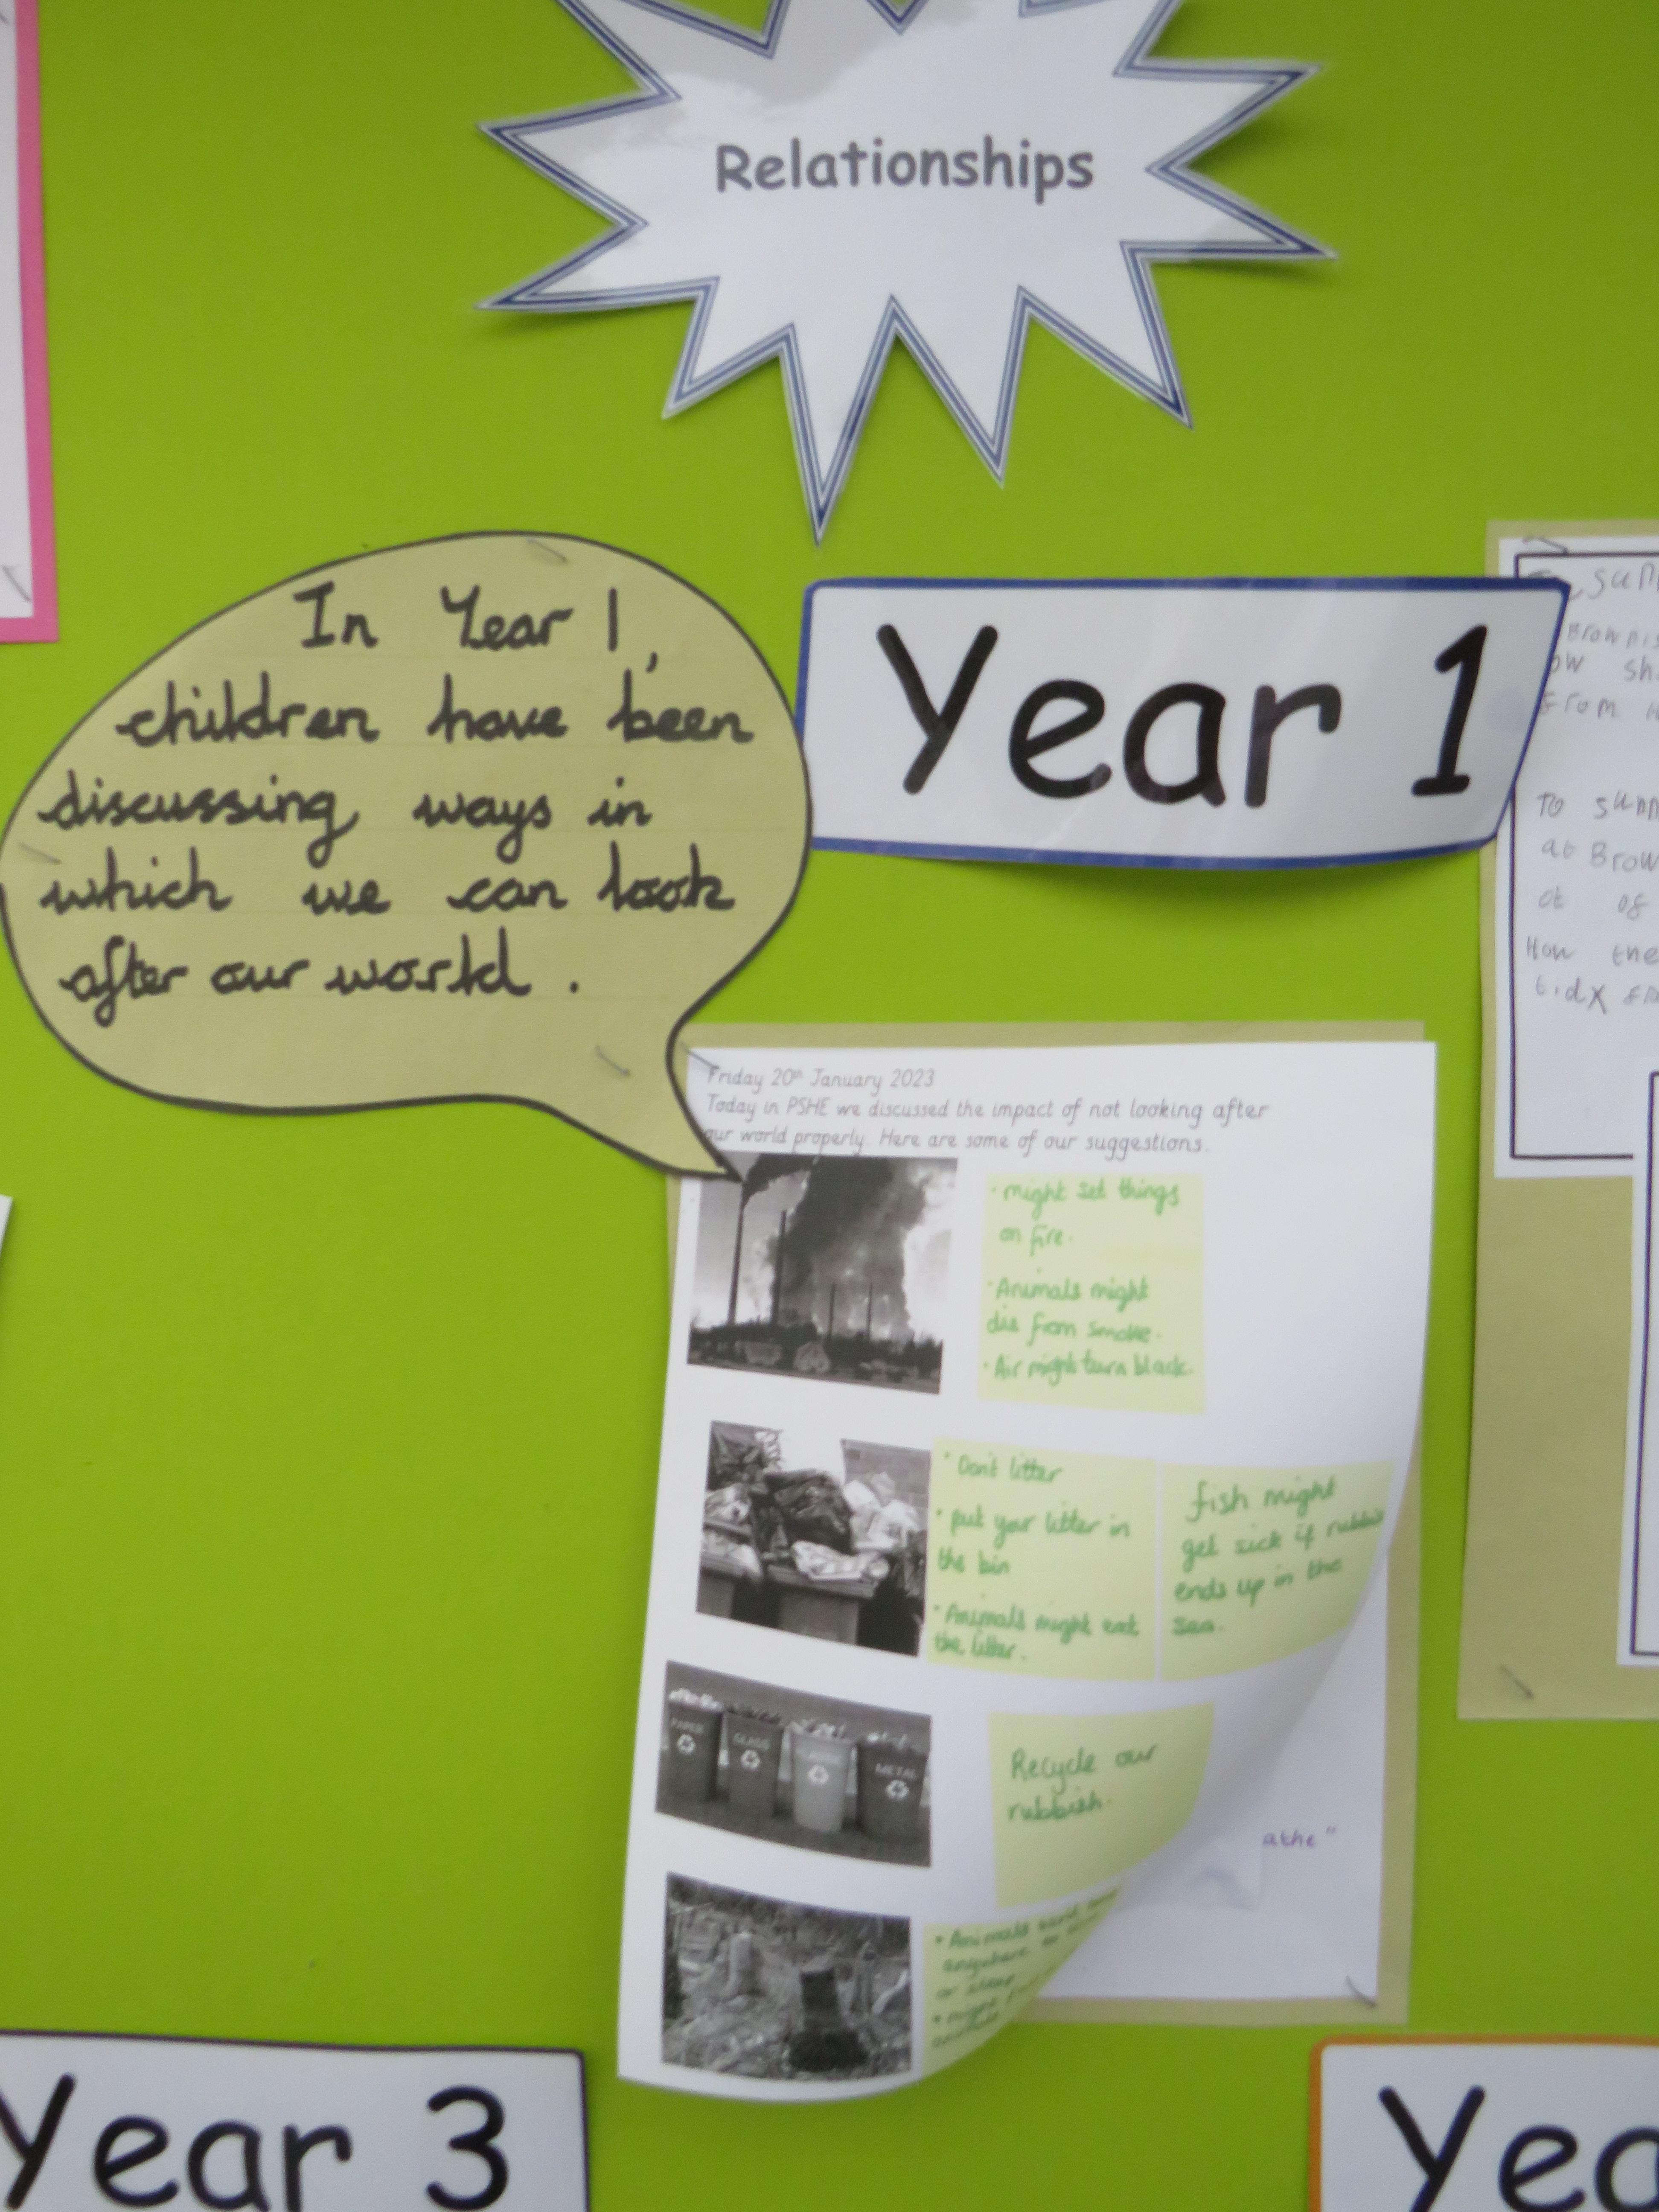 Relationships
In Year 1,
children have been
discussing ways in
which we can look
after our world.
Year 1
Friday 20th January 2023
Today in PSHE we discussed the impact of not looking after
our world properly. Here are some of our suggestions.
· might set things
on fire.
· Animals might
die from smoke.
· Air might turn black.
· Don't litter
· put your litter in
the bin
· Animals might eat
the litter.
fish might
get sick if rubbish
ends up in the
sea.
PAPER
GLASS
PLASTIC
METAL
Recycle our
rubbish.
athe"
· Animals
anywhere to
or sleep
· might
To
at Brow
of
How the
From
Year 3
Yea